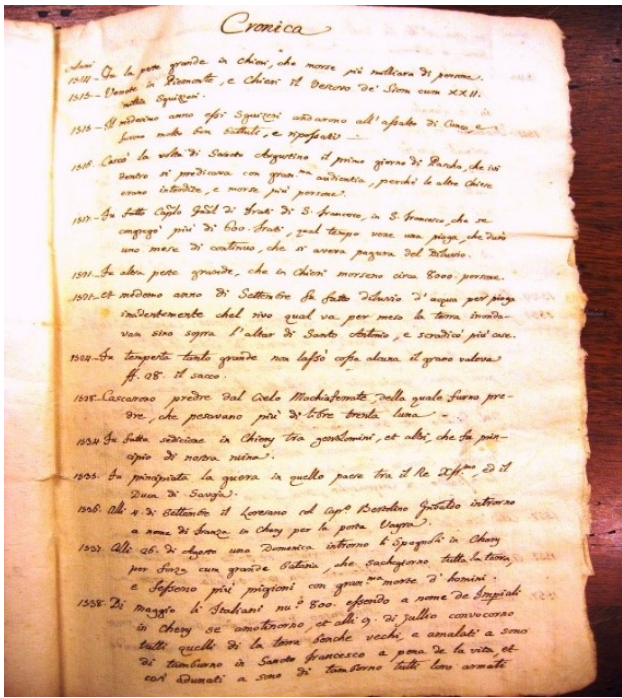 Cronica
Anni
1514 - Fu la peste grande in Chieri, che morse più milliara di persone.
1515 - Venete in Piemonte, e Chieri il Vescovo de' Sion cum XXII.
millia Squizzeri.
1515 - Il medesimo anno essi Squizzeri andarono all'assalto di Cuneo, e
furono molto ben battuti, e ripossati
1516. Cascò la volta di Sancto Augustino il primo giorno di Pascha, che ivi
dentro si predicava con gran.ma audientia, perchè le altre Chiese
erano interdite, e morse più persone.
1517 - Fu fatto Caplo Gnal di frati di S. francesco, in S. francesco, che se
congregò più di 600. frati, qual tempo vene una piogia, che durò
uno mese di continuo, che si aveva pagura del Diluvio.
1521. Fu altra peste grande, che in Chieri morseno circa 8000. persone.
1521 - et medemo anno di Settembre fu fatto diluvio d'acqua per piogia
inadentemente chel rivo qual va per mezo la terra inonda-
van sino sopra l'altar di Santo Antonio, e scradicò più case.
1524 - Fu tempesta tanto grande non lassò cossa alcuna il grano valeva
ff. 28. il sacco.
1528 - Cascarono predre dal Cielo della quale furno pre-
dre, che pesavano più di libre trenta luna -
1534 Fu fatta sedicione in Chiery tra gentilomini, et altri, che fu prin-
cipio di nostra ruina.
1535. Fu principiata la guera in quello paese tra il Re Xpmo, ed il
Duca di Savoja.
1536. Alli 4. di Settembre il Loresano col Capo. Bertolino introrno
a nome di franza in Chery per la porta Vayra.
1537. Alli 26. di Agosto una Domenica introrno li Spagnoli in Chery
per forza cum grande bataria, che sachegiorno tutta la terra,
e fesseno più prigioni con gran.ma morte d'homini.
1538. Di maggio li Italiani nu.o 800. essendo a nome de Impiali
in Chery se amotinorno, et alli 9. di Jullio convocorno
tutti quelli di la terra benche vechi, e amalati a sono
di tamburno in Sancto francesco a pena de la vita, et
così adunati a sono di tamborno tutti loro armati